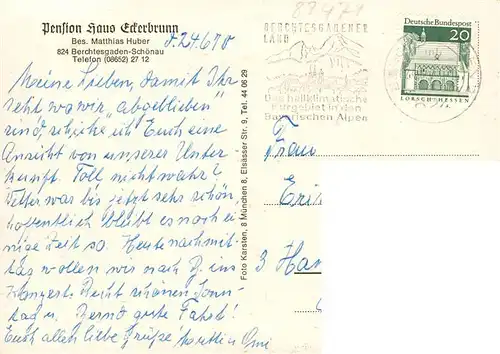 Pension Haus Eckerbrunn
Bes. Matthias Huber
824 Berchtesgaden-Schönau
Telefon (08652) 27 12
d. 24.6.70
Meine Lieben, damit Ihr
seht, wo wir „abgeblieben"
sind, schicke ich Euch eine
Ansicht von unserer Unter
kunft. Toll nicht wahr?
Wetter war bis jetzt sehr schön,
hoffentlich bleibt es noch ei
nige Zeit so. Heute nachmit-
tag wollen wir nach B. ins
Konzert. Recht schönen Sonn-
tag u. Bernd gute Fahrt!
Euch allen liebe Grüße
Foto Karsten, 8 München 8, Elsässer Str. 9, Tel. 44 06 29
83471
BERCHTESGADENER
LAND
Das heilklimatische
Kurgebiet in den
Bayerischen Alpen
Deutsche Bundespost
20
LORSCH/HESSEN
Frau
Eri
3 Han